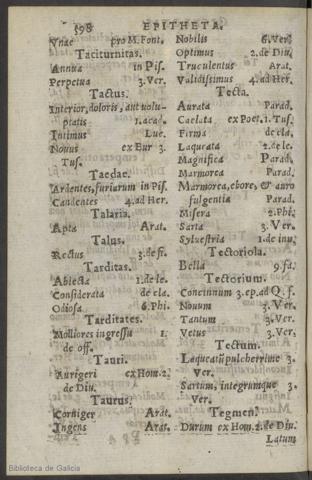 598 EPITHETA.
Vnae pro M. Font.
Taciturnitas.
Annua in Pis.
Perpetua 3. Ver.
Tactus.
Interior, doloris, aut volu-
ptatis 1. acad.
Intimus Luc.
Nouus ex Eur 3.
Tus.
Taedae.
Ardentes, furiarum in Pis.
Candentes 4. ad Her.
Talaria.
Apta Arat.
Talus.
Rectus 3. de fi.
Tarditas.
Abiecta 1. de le.
Considerata de cla.
Odiosa 6. Phi.
Tarditates.
Molliores in gressu 1.
de off.
Tauri.
Aurigeri ex Hom. 2.
de Diu.
Taurus.
Corniger Arat.
Ingens Arat.
Nobilis 6. Ver.
Optimus 2. de Diu.
Truculentus Arat.
Validissimus 4. ad Her.
Tecta.
Aurata Parad.
Caelata ex Poet. 1. Tus.
Firma de cla.
Laqueata 2. de le.
Magnifica Parad.
Marmorea Parad.
Marmorea, ebore, & auro
fulgentia Parad.
Misera 2. Phi.
Sarta 3. Ver.
Syluestria 1. de inu.
Tectoriola.
Bella 9. fa.
Tectorium.
Concinnum 3. ep. ad Q. f.
Nouum 3. Ver.
Tantum 3. Ver.
Vetus 3. Ver.
Tectum.
Laqueatũ pulcherrime 3.
Ver.
Sartum, integrumque 3.
Ver.
Tegmen.
Durum ex Hom. 2. de Diu.
Latum
Biblioteca de Galicia